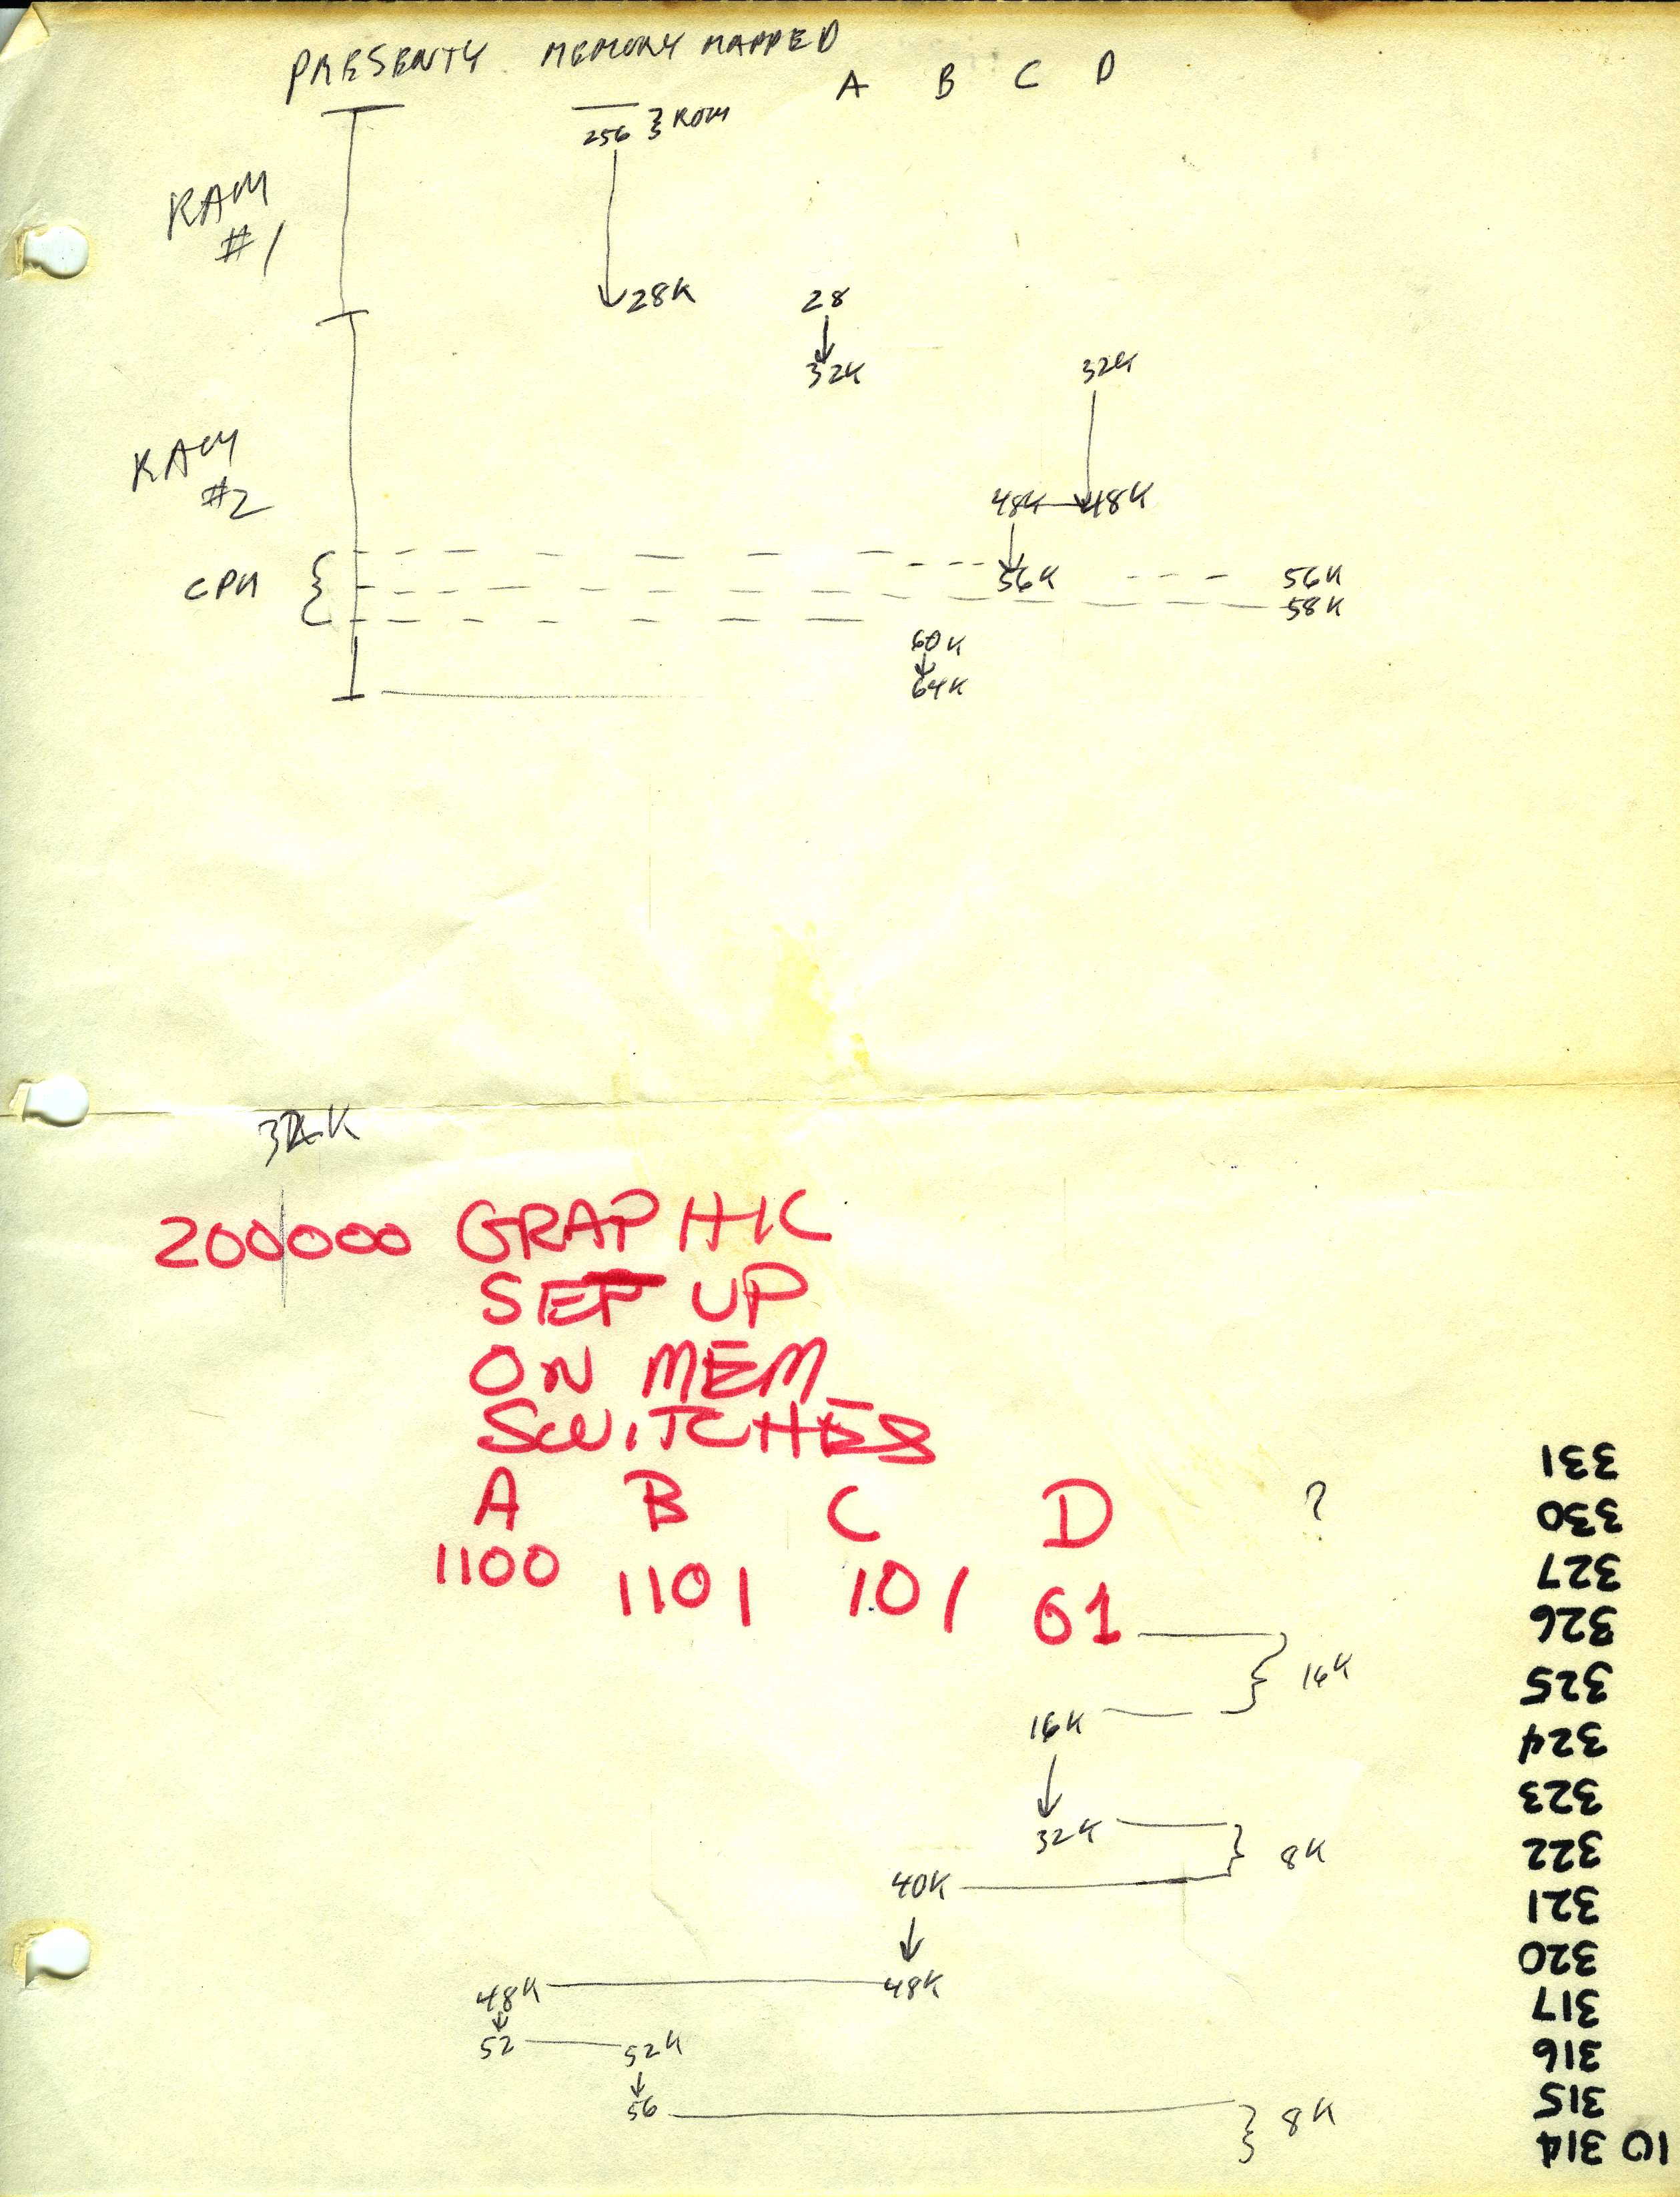 PRESENTY MEMORY MAPPED
A B C D
256 } ROM
RAM
#1
28K 28
32K 32K
RAM
#2
48K 48K
CPM { 56K 56K
58K
60K
64K
200000 GRAPHIC
SET UP
ON MEM
SWITCHES
A B C D ?
1100 1101 101 01
} 16K
16K
32K } 8K
40K
48K 48K
52 52K
56 } 8K
10 314
315
316
317
320
321
322
323
324
325
326
327
330
331